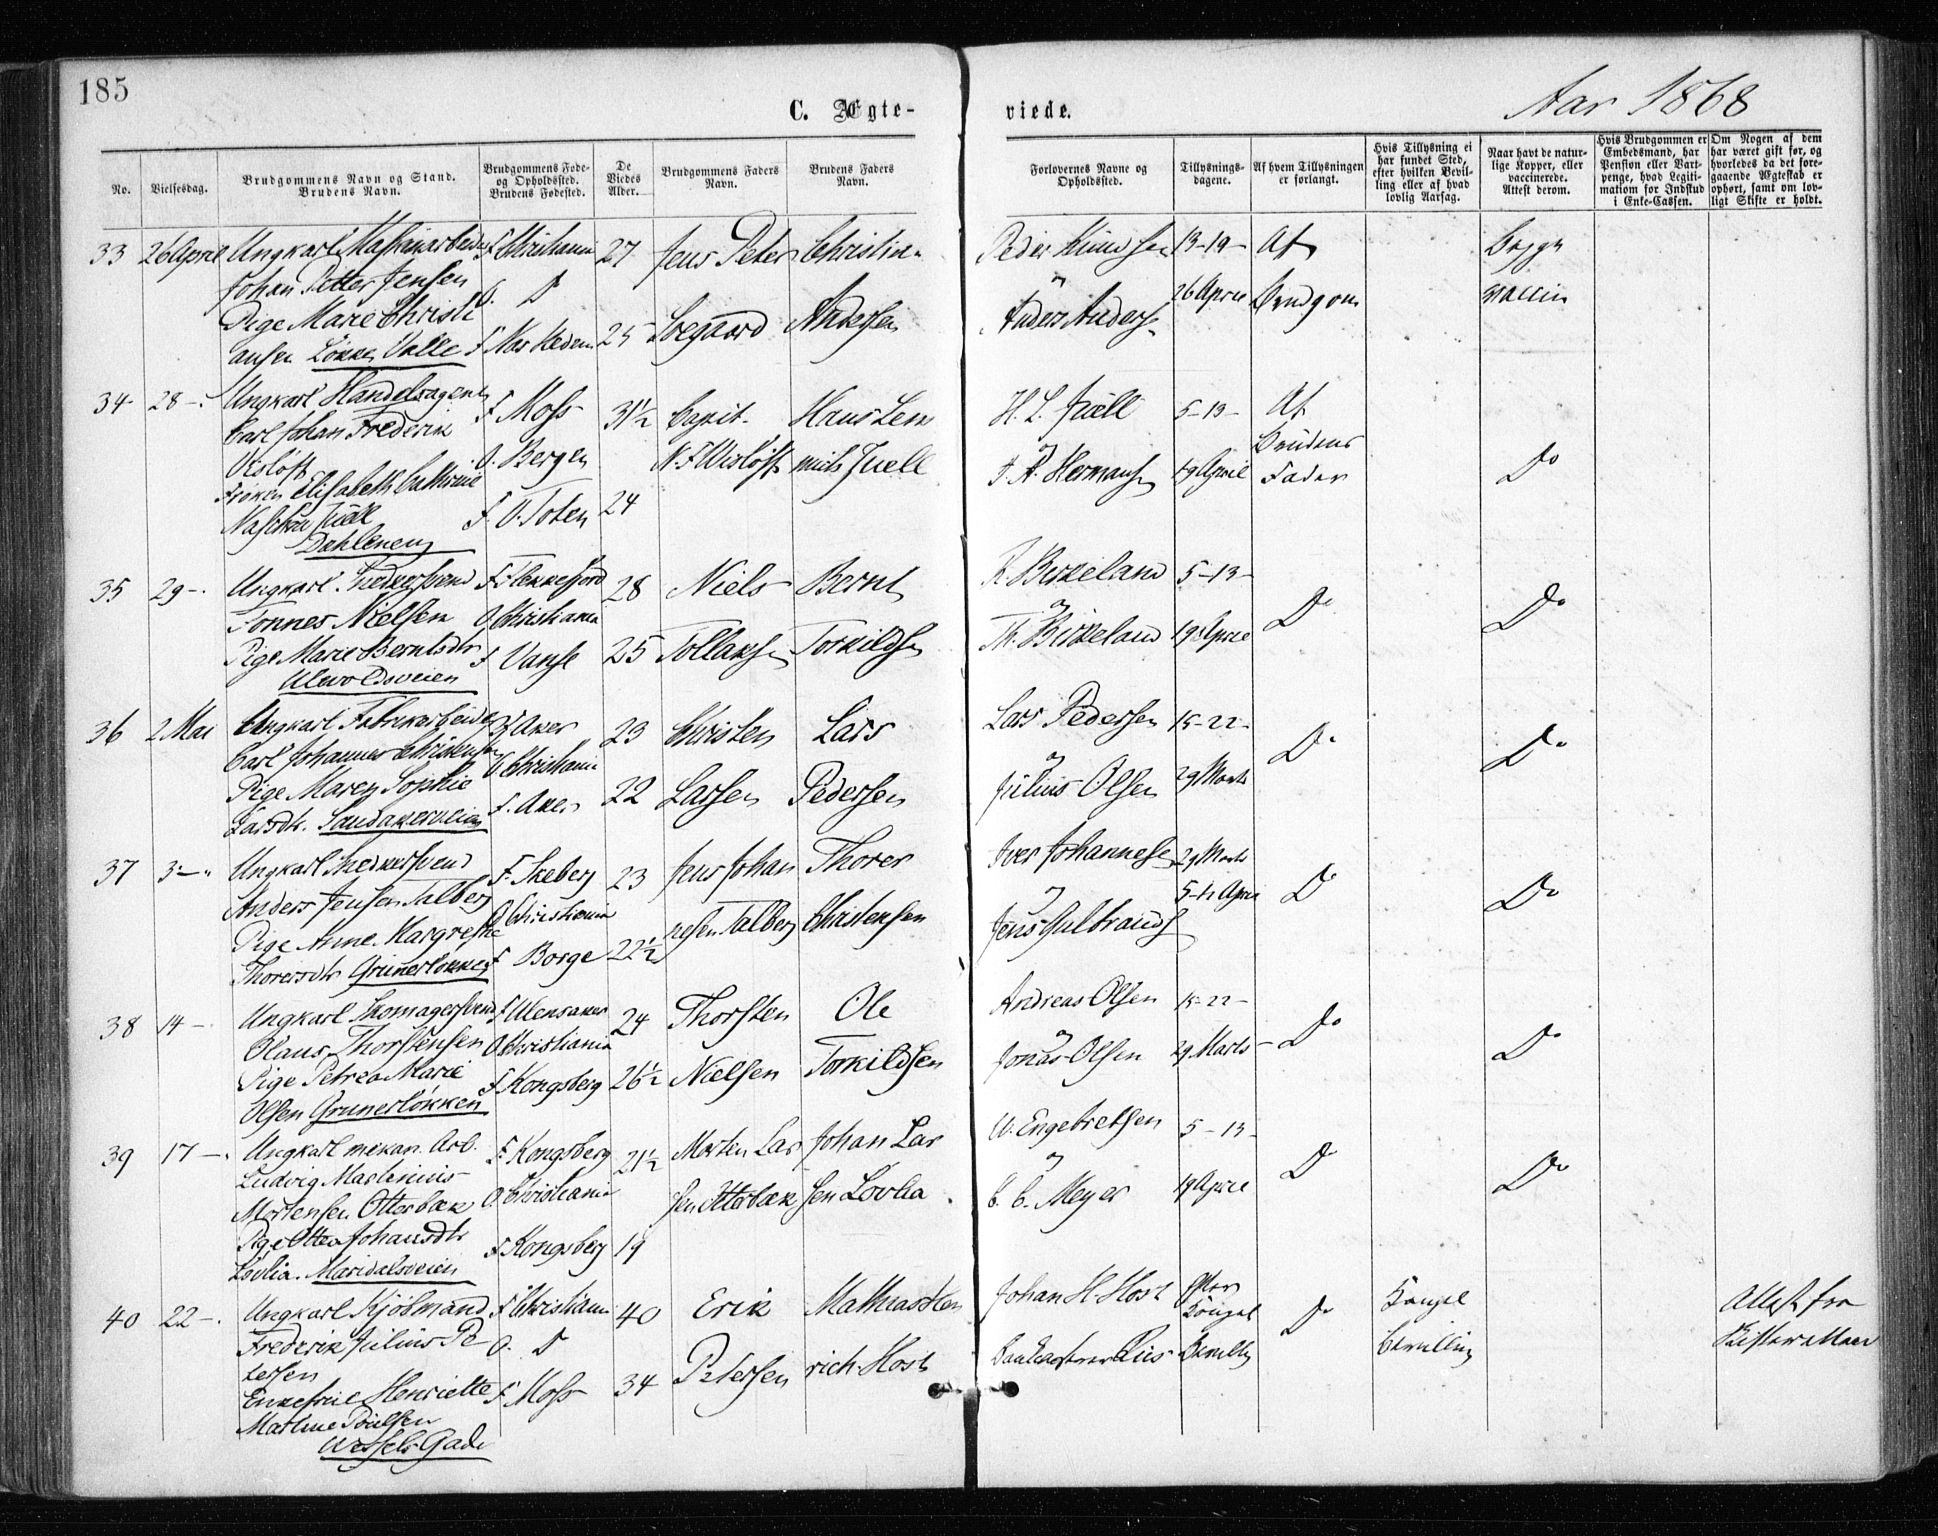 185
C. Ægte-
viede.
Aar 1868
No.
Vielsesdag.
Brudgommens Navn og Stand.
Brudens Navn.
Brudgommens Føde-
og Opholdssted.
Brudens Fødested.
De
Viedes
Alder.
Brudgommens Faders
Navn.
Brudens Faders
Navn.
Forlovernes Navne og
Opholdssted.
Tillysnings-
dagene.
Af hvem Tillysningen
er forlangt.
Hvis Tillysning ei
har fundet Sted,
efter hvilken Bevil-
ling eller af hvad
lovlig Aarsag.
Naar havt de natur-
lige Kopper, eller
vaccinerede.
Attest derom.
Hvis Brudgommen er
Embedsmand, har
Pension eller Vart-
penge, hvad Legiti-
mation for Indskud
i Enke-Cassen.
Om Nogen af dem
har været gift før, og
hvorledes da det fore-
gaaende Ægteskab er
ophørt, samt om lov-
ligt Skifte er holdt.
33 26 April Ungkarl Maskinarbeider F. Christiania 27 Jens Peter Christian
Johan Petter Jensen O. D
Pige Marie Christi
ansen Løkken Valle F. Næs Hedem 25 Soegaard Andersen
Peder Knudsen 13-19- Af Begge
og 26 April Brudgom vaccin
Anders Anders
34 28 - Ungkarl Handelsagent F. Moss 31½ Capit. Hans Lem
Carl Johan Frederik
Wisløff O. Bergen N. F. Wisløff mich Juell
Frøken Elisabeth Cathrine
Juell F. Ø. Toten 24
Dahleneng
H. L. Juell 5-13- Af
og Brudens
Hermansen 19 April Fader Do
35 29 - Ungkarl Snedkersvend F. Flekkefjord 28 Niels Bernt
Tønnes Nielsen O. Christiania
Pige Marie Berntsdtr F. Vanse 25 Tollaksen Torkildsen
Ulevoldsveien
R. Birkeland 5-13-
og
Th. Birkeland 19 April Do Do
36 2 Mai Ungkarl Fabrikarbeider F. Aker 23 Christen Lars
Carl Johannes Christensen O. Christiania
Pige Maren Sophie
Larsdtr. Sandakerveien F. Aker 22 Larsen Pedersen
Lars Pedersen 15-22-
og
Julius Olsen 29 Marts Do Do
37 3 - Ungkarl Snedkersvend F. Skeberg 23 Jens Johan Thorer
Anders Jensen Talberg O. Christiania
Pige Anne Margrethe nesen Talberg Christensen
Thoresdtr Grünerløkken F. Borge 22½
Iver Johannesen 29 Marts
og 5-11 April
Jens Gulbrands Do Do
38 14 - Ungkarl Skomagersvend F. Ulensaker 24 Thorsten Ole
Olaus Thorstensen O. Christiania
Pige Petrea Marie F. Kongsberg 26½ Nielsen Torkildsen
Olsen Grünerløkken
Andreas Olsen 15-22-
og
Jonas Olsen 29 Marts - Do Do
39 17 - Ungkarl mekan. Arb. F. Kongsberg 21½ Morten Lar Johan Lar
Ludvig Martinius
Mortensen Otterbæk O. Christiania sen Otterbæk sen Løvlia
Pige Johansdtr F. Kongsberg 19
Løvlia. Maridalsveien
W. Engebretsen 5-13-
og
C. C. Meyer 19 April Do Do
40 22 - Ungkarl Kjøbmand F. Christiania 40 Erik Mathias Hen
Frederik Julius Pe- O. D
tersen Petersen rich Høst
Enkefrue Henriette F. Moss 34
Martine Poulsen
Wessels Gade
Johan H. Høst efter Kongel Attest fra
Kongel Do Bevilling Skifteretten
Riis Bevilling